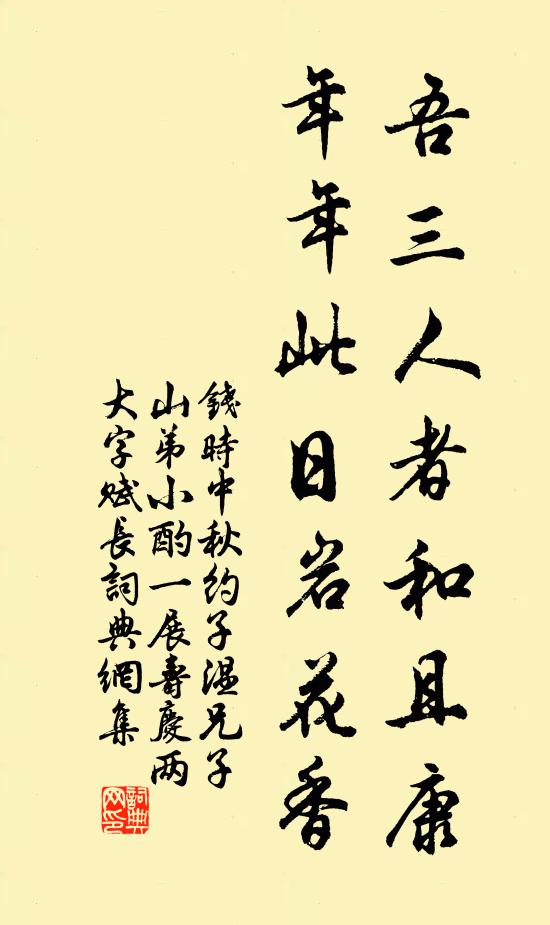 吾三人者和且康
年年此日岩花香
錢時中秋約子溫兄子
山弟小酌一展壽慶两
大字赋長詞典網集
詞典网印